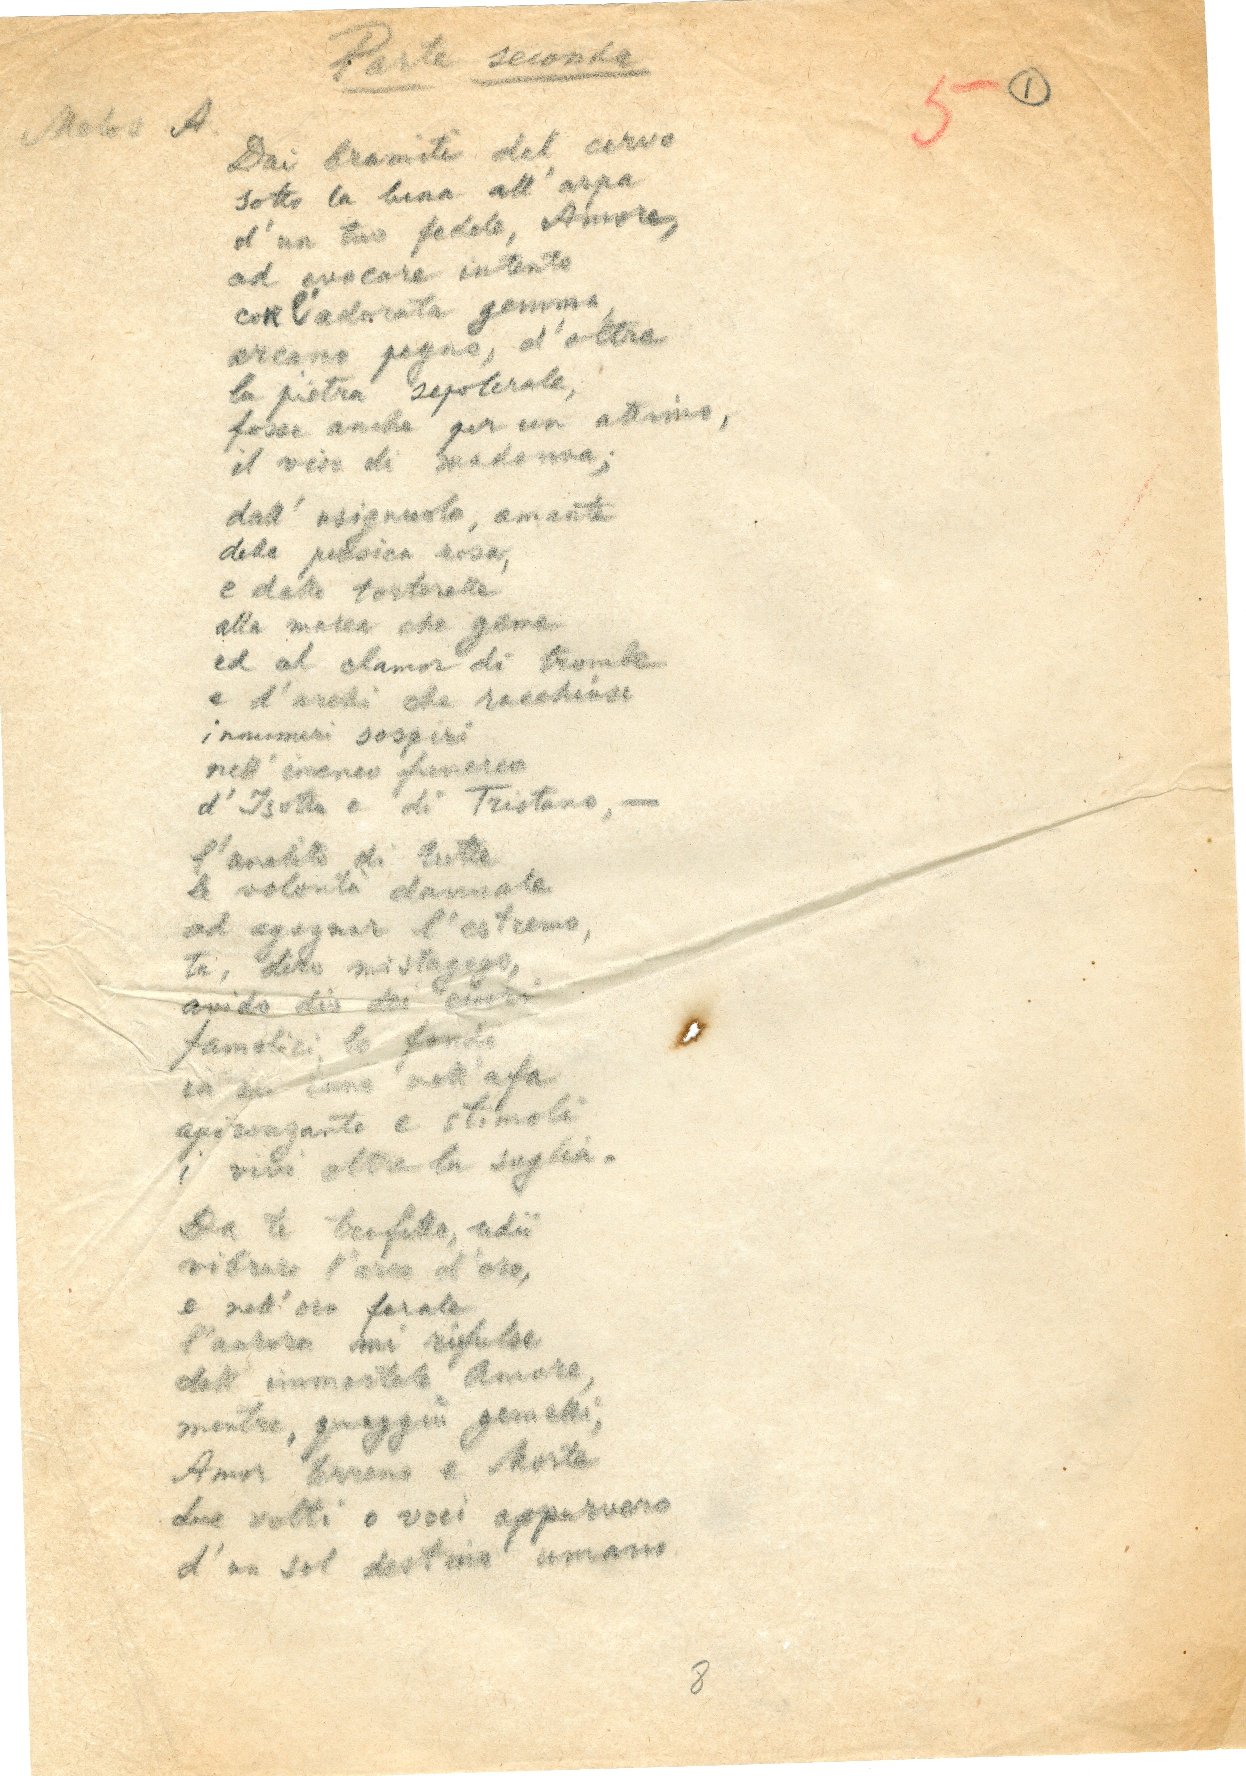 Parte seconda
5 1
Melos A.
Dai bramiti del cervo
sotto la luna all'arpa
d'un tuo fedele, Amore,
ad evocare intento
con l'adorata gemma,
arcano pegno, d'oltre
la pietra sepolcrale,
fosse anche per un attimo,
il viso di madonna;
dall'usignuolo, amante
della persica rosa,
e dalle tortorelle
alla marea che geme
ed al clamor di trombe
e d'archi che racchiuse
innumeri sospiri
nell'imeneo funereo
d'Isotta e di Tristano, —
l'anelito di tutte
le volontà dannate
ad agognar l'estremo,
tu, dito mistagogo,
avido dio dei cuori
famelici, lo fondi
in un nell'afa
e stimoli
i vivi oltre la soglia.
Da te trafitto, udii
vibrare l'arco d'oro,
e nell'ora ferale
l'aurora mi rifulse
dell'immortale Amore,
mentre, quaggiù gemelli,
Amor terreno e Morte
due volti e voci apparvero
d'un sol destino umano
8